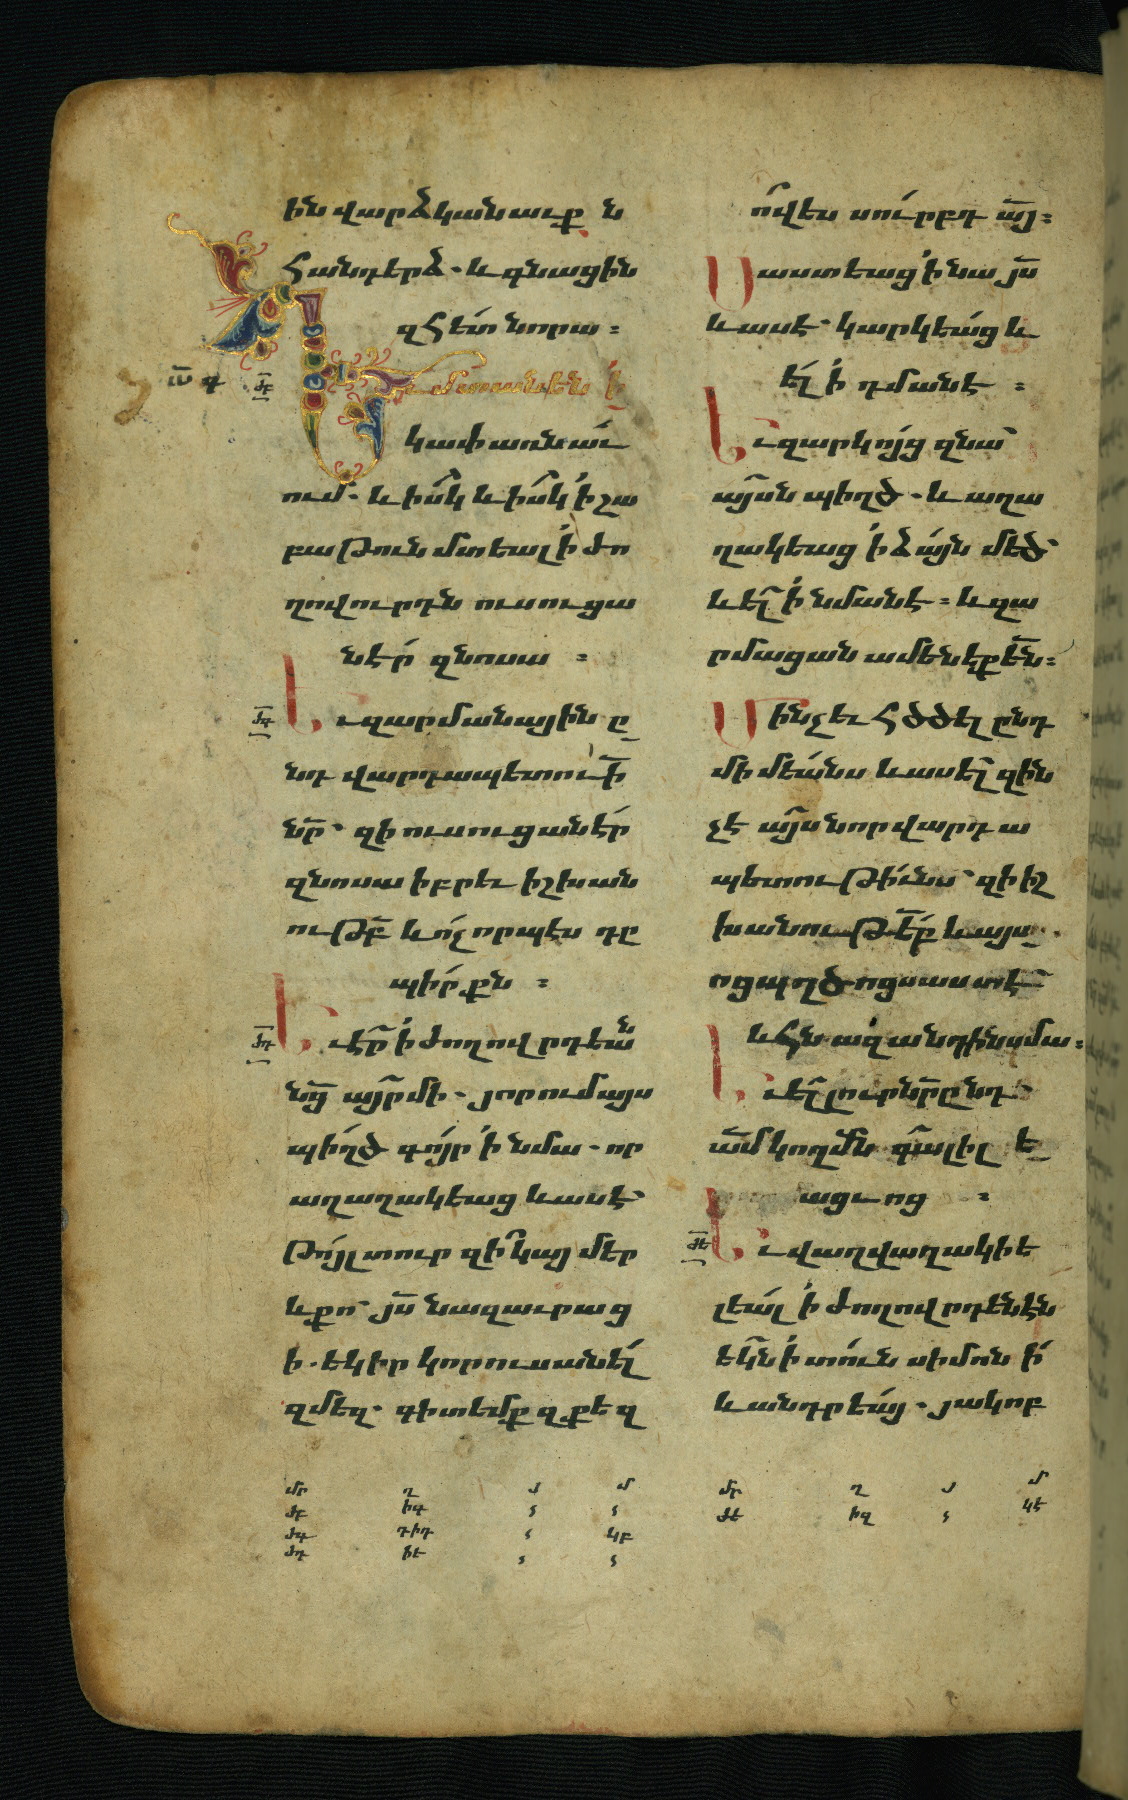 ին վարձկանաւք ն
հանդերձ. և գնացին
զհետ նորա :
Եւ մտանեն ի
կափառնաւ
ում. և իսկ և իսկ ի շա
բաթուն մտեալ ի ժո
ղովուրդն ուսուցա
նէր զնոսա :
Եւ զարմանային ը
նդ վարդապետուի
նր՝ զի ուսուցանէր
զնոսա իբրեւ իշխան
ութբ և ոչ որպէս դը
պիրքն :
Եւ էր ի ժողովրդեան
նց այր մի. յորում այս
պիղծ գոյր ի նմա. որ
աղաղակեաց և ասէ՝
Թոյլ տուր զի կայ մեր
և քո՝ յս նազաւրաց
ի. եկիր կորուսանել
զմեզ. գիտեմք զքեզ
ո՞վ ես սուրբդ այ:
Սաստեաց ի նա յս
և ասէ՝ կարկեաց և
ել ի դմանէ :
Եւ զարկոյց զնա՝
այսն պիղծ. և աղա
ղակեաց ի ձայն մեծ՝
և ել ի նմանէ: և զա
րմացան ամենեքեն:
Մինչեւ հծծել ընդ
միմեանս և ասել զին
չէ այս նոր վարդա
պետութիւնս՝ զի իշ
խանութեբ և այս
ոց պղծոց սաստէ՝
և հնազանդին սմա:
Եւ ել լուր նր ընդ
ամ կողմն գալիլ ե
ացւոց :
Եւ վաղվաղակի ե
լեալ ի ժողովրդենէն
եկն ի տուն սիմոնի
և անդրեայ. յակոբ